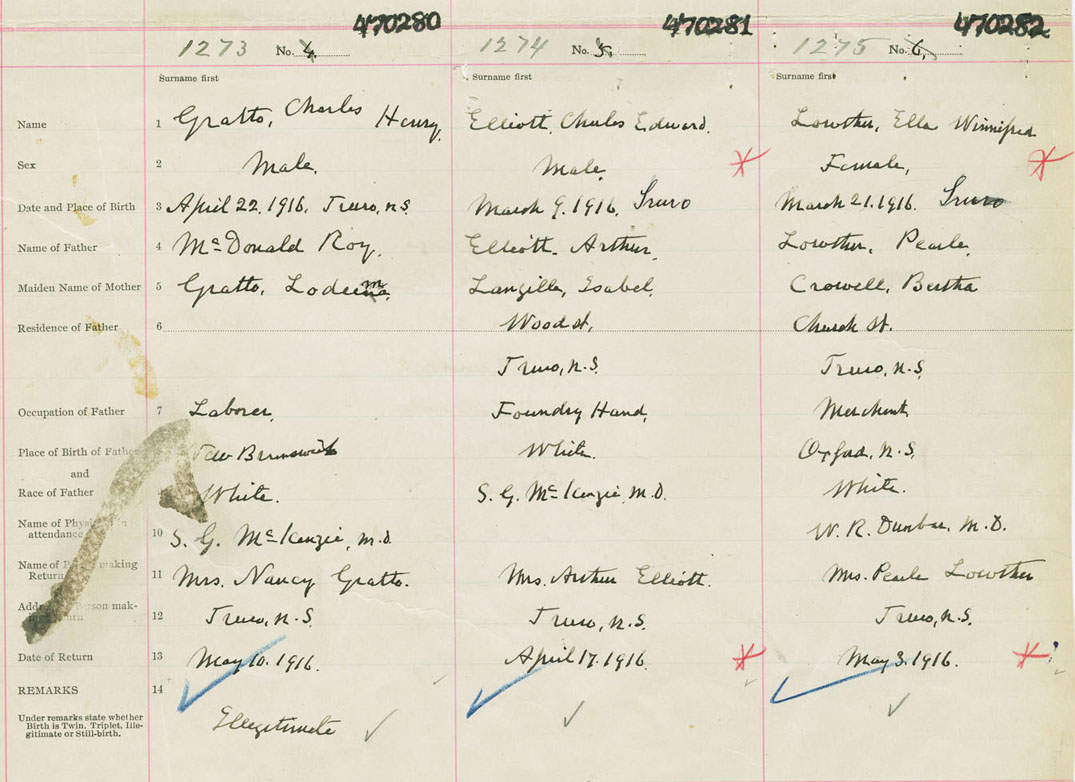 470280 470281 470282
1273 No. 4. 1274 No. 5. 1275 No. 6.
Surname first Surname first Surname first
Name 1 Gratto, Charles Henry Elliott, Charles Edward. Lowther, Ella Winnifred
Sex 2 Male. Male. Female,
Date and Place of Birth 3 April 22. 1916. Truro, n.s. March 9. 1916. Truro March 21. 1916. Truro
Name of Father 4 McDonald Roy. Elliott. Arthur. Lowther, Pearle
Maiden Name of Mother 5 Gratto, Langille, Isabel. Crowell, Bertha
Residence of Father 6 Wood st, Church St.
Truro, N.S. Truro, N.S.
Occupation of Father 7 Laborer, Foundry Hand, Merchant
Place of Birth of Father New Brunswick White. Oxford, N.S.
and
Race of Father White. S. G. McKenzie, M.D. White.
Name of
attendance 10 S. G. McKenzie, M.D. W. R. Dunbar, M.D.
Name of making
Return 11 Mrs. Nancy Gratto. Mrs. Arthur Elliott. Mrs. Pearle Lowther
mak-
12 Truro, N.S. Truro, N.S. Truro, N.S.
Date of Return 13 May 10. 1916. April 17. 1916. May 3. 1916.
REMARKS 14
Under remarks state whether
Birth is Twin, Triplet, Ille-
gitimate or Still-birth.
Ellegitimate